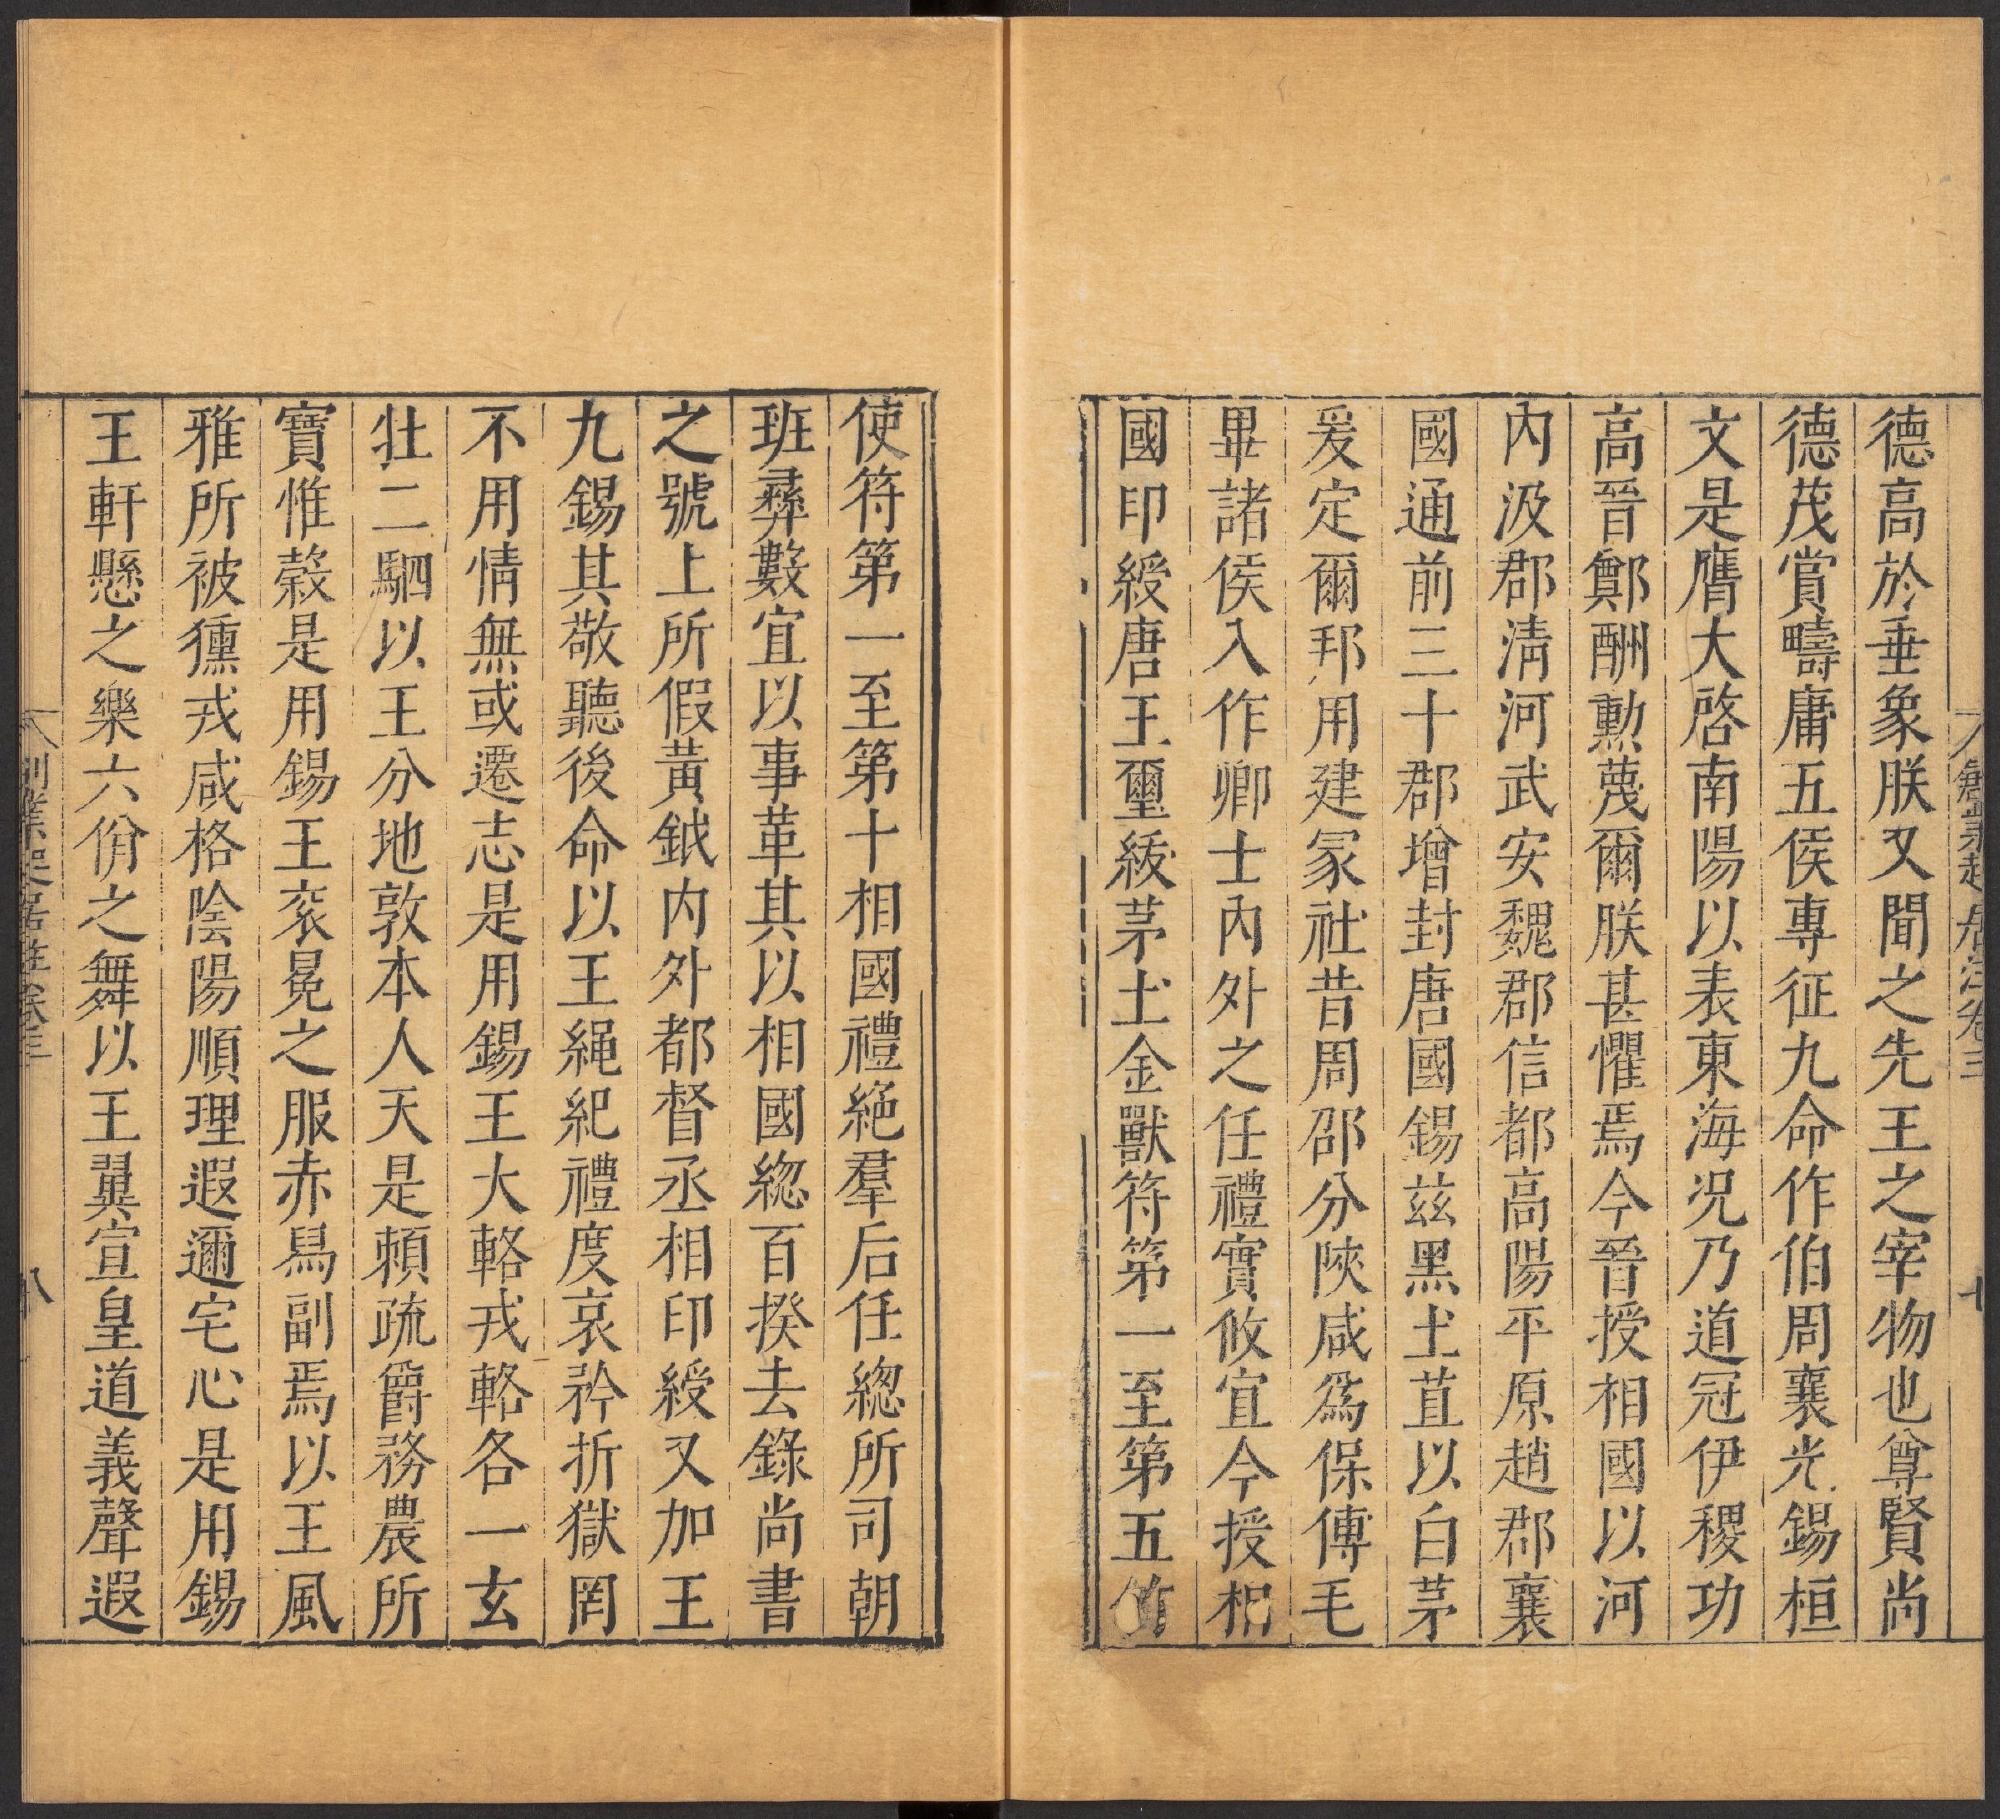 德高於垂象朕又聞之先王之宰物也尊賢尚
德茂賞疇庸五侯專征九命作伯周襄光錫桓
文是膺大啓南陽以表東海况乃道冠伊稷功
高晉鄭酬勲蔑爾朕甚懼焉今晉授相國以河
內汲郡清河武安魏郡信都高陽平原趙郡襄
國通前三十郡增封唐國錫茲黑土苴以白茅
爰定爾邦用建冢社昔周邵分陝咸爲保傅毛
畢諸侯入作卿士內外之任禮實攸宜今授相
國印綬唐王璽紱茅土金獸符第一至第五竹
使符第一至第十相國禮絶羣后任緫所司朝
班彞數宜以事革其以相國緫百揆去錄尚書
之號上所假黃鉞内外都督丞相印綬又加王
九錫其敬聽後命以王䋲紀禮度哀矜折獄罔
不用情無或遷志是用錫王大輅戎輅各一玄
牡二駟以王分地敦本人天是頼疏爵務農所
寶惟榖是用錫王衮冕之服赤舄副焉以王風
雅所被獯戎咸格陰陽順理遐邇宅心是用錫
王軒懸之樂六佾之舞以王翼宣皇道義聲遐
八